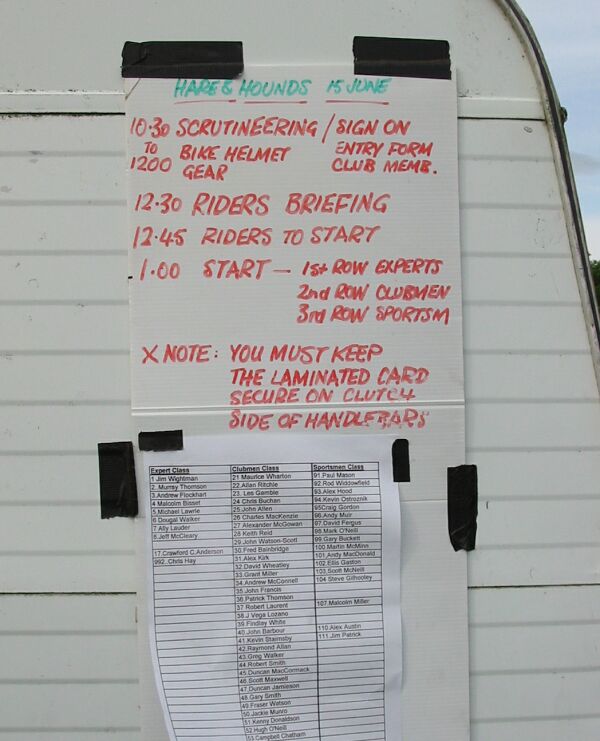 HARE & HOUNDS 15 JUNE
10·30 SCRUTINEERING / SIGN ON
TO BIKE HELMET ENTRY FORM
1200 GEAR CLUB MEMB.
12·30 RIDERS BRIEFING
12·45 RIDERS TO START
1·00 START — 1st ROW EXPERTS
2nd ROW CLUBMEN
3rd ROW SPORTSM
X NOTE: YOU MUST KEEP
THE LAMINATED CARD
SECURE ON CLUTCH
SIDE OF HANDLEBARS
Expert Class Clubmen Class Sportsmen Class
1 Jim Wightman 21 Maurice Wharton 91.Paul Mason
2. Murray Thomson 22.Allan Ritchie 92.Rod Widdowfield
3.Andrew Flockhart 23. Les Gamble 93.Alex Hood
4 Malcolm Bisset 24 Chris Buchan 94.Kevin Ostroznik
5 Michael Lawrie 25 John Allen 95Craig Gordon
6 Dougal Walker 26 Charles MacKenzie 96.Andy Muir
7 Ally Lauder 27 Alexander McGowan 97 David Fergus
8.Jeff McCleary 28 Keith Reid 98.Mark O'Neill
29 John Watson-Scott 99.Gary Buckett
17.Crawford C.Anderson 30.Fred Bainbridge 100 Martin McMinn
992..Chris Hay 31.Alex Kirk 101.Andy MacDonald
32.David Wheatley 102.Ellis Gaston
33.Grant Miller 103.Scott McNeill
34.Andrew McConnell 104 Steve Gilhooley
35.John Francis
36.Patrick Thomson
37 Robert Laurent 107.Malcolm Miller
38.J Vega Lozano
39.Findlay White
40.John Barbour 110.Alex Austin
41.Kevin Stamsby 111.Jim Patrick
42.Raymond Allan
43.Greg Walker
44.Robert Smith
45 Duncan MacCormack
46.Scott Maxwell
47.Duncan Jamieson
48.Gary Smith
49.Fraser Watson
50.Jackie Munro
51.Kenny Donaldson
52.Hugh O'Neill
53.Campbell Chatham